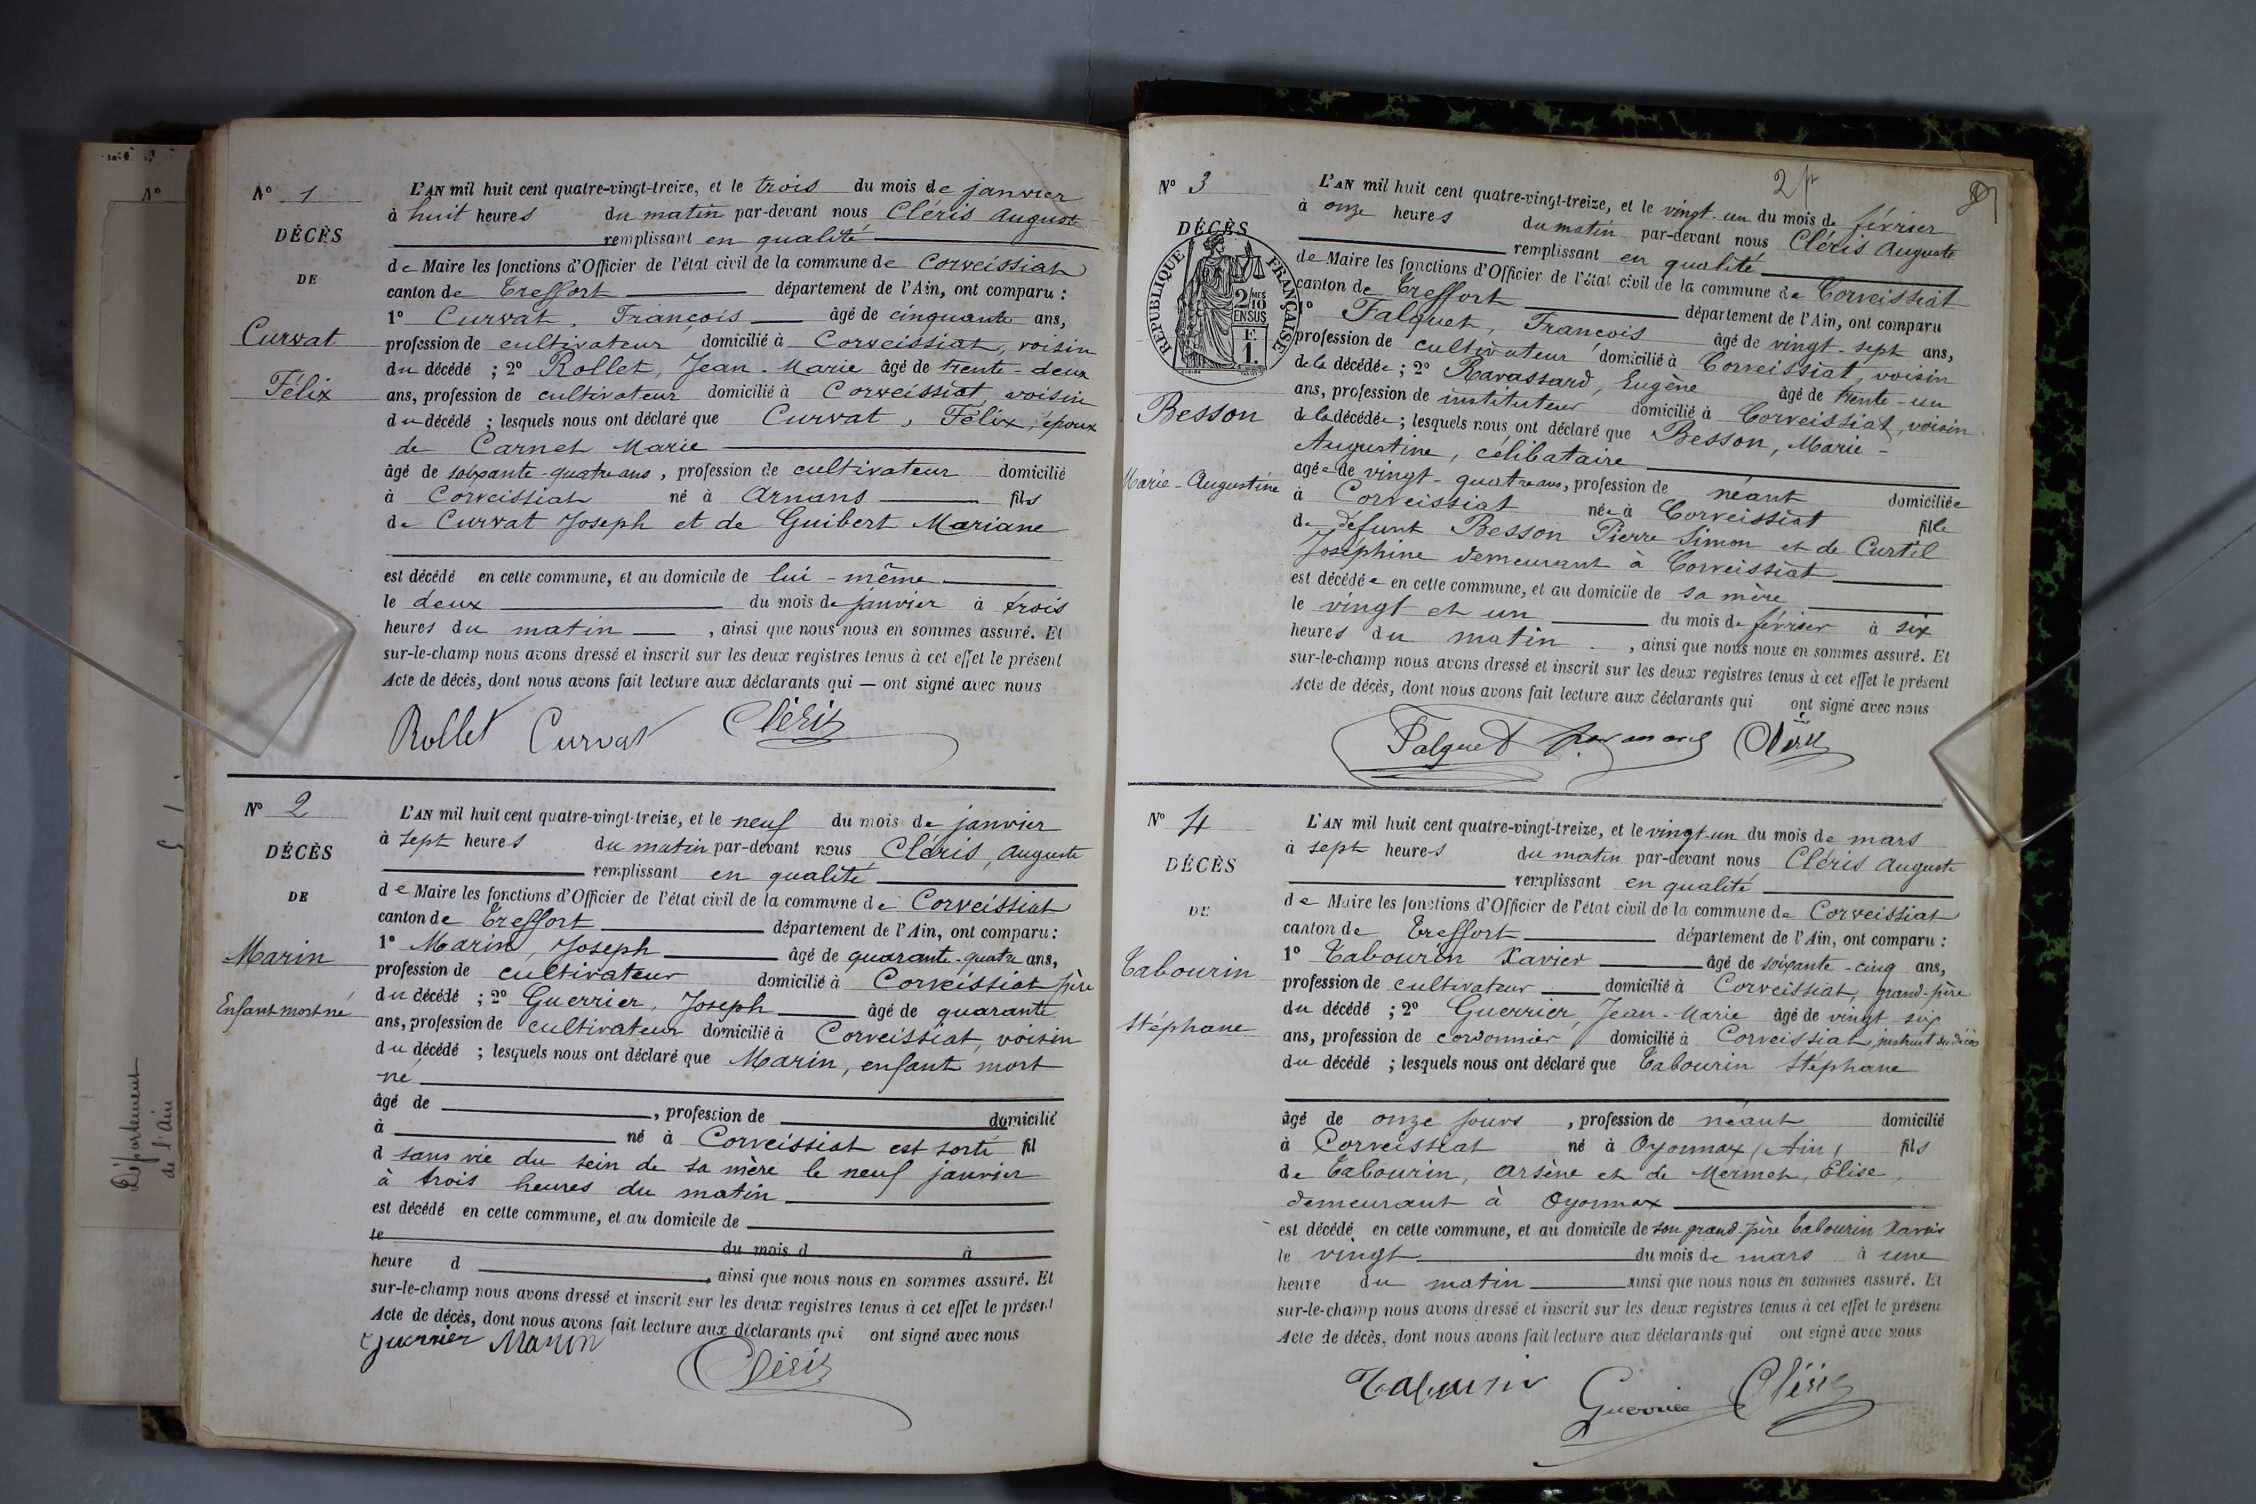 N° 1
DÉCÈS
DE
Curvat
Félix
L'AN mil huit cent quatre-vingt-treize, et le trois du mois de janvier
à huit heures du matin par-devant nous Cléris Auguste
remplissant en qualité
de Maire les fonctions d'Officier de l'état civil de la commune de Corveissiat
canton de Treffort département de l'Ain, ont comparu :
1° Curvat, François âgé de cinquante ans,
profession de cultivateur domicilié à Corveissiat, voisin
du décédé ; 2° Rollet, Jean-Marie âgé de trente-deux
ans, profession de cultivateur domicilié à Corveissiat, voisin
du décédé ; lesquels nous ont déclaré que Curvat, Félix, époux
de Carnet Marie
âgé de soixante-quatre ans, profession de cultivateur domicilié
à Corveissiat né à Arnans fils
de Curvat Joseph et de Guibert Mariane
est décédé en cette commune, et au domicile de lui-même
le deux du mois de janvier à trois
heures du matin, ainsi que nous nous en sommes assuré. Et
sur-le-champ nous avons dressé et inscrit sur les deux registres tenus à cet effet le présent
Acte de décès, dont nous avons fait lecture aux déclarants qui — ont signé avec nous
Rollet Curvat Cléris
N° 2
DÉCÈS
DE
Marin
Enfant mort né
L'AN mil huit cent quatre-vingt-treize, et le neuf du mois de janvier
à sept heures du matin par-devant nous Cléris, Auguste
remplissant en qualité
de Maire les fonctions d'Officier de l'état civil de la commune de Corveissiat
canton de Treffort département de l'Ain, ont comparu :
1° Marin, Joseph âgé de quarante-quatre ans,
profession de cultivateur domicilié à Corveissiat père
du décédé ; 2° Guerrier, Joseph âgé de quarante
ans, profession de cultivateur domicilié à Corveissiat, voisin
du décédé ; lesquels nous ont déclaré que Marin, enfant mort
né
âgé de , profession de domicilié
à né à Corveissiat est sorti fil
d sans vie du sein de sa mère le neuf janvier
à trois heures du matin
est décédé en cette commune, et au domicile de
le du mois d à
heure d , ainsi que nous nous en sommes assuré. Et
sur-le-champ nous avons dressé et inscrit sur les deux registres tenus à cet effet le présent
Acte de décès, dont nous avons fait lecture aux déclarants qui ont signé avec nous
Guerrier Marin
Cléris
Département
de l'Ain
2
N° 3
DÉCÈS
RÉPUBLIQUE FRANÇAISE
2/10 MES
EN SUS
F.
1.
Besson
Marie-Augustine
L'AN mil huit cent quatre-vingt-treize, et le vingt-un du mois de février
à onze heures du matin par-devant nous Cléris Auguste
remplissant en qualité
de Maire les fonctions d'Officier de l'état civil de la commune de Corveissiat
canton de Treffort département de l'Ain, ont comparu
1° Falquet, François âgé de vingt-sept ans,
profession de cultivateur domicilié à Corveissiat, voisin
de la décédée ; 2° Ravassard, Eugène âgé de trente-un
ans, profession de instituteur domicilié à Corveissiat, voisin
de la décédée ; lesquels nous ont déclaré que Besson, Marie-
Augustine, célibataire
âgée de vingt-quatre ans, profession de néant domiciliée
à Corveissiat née à Corveissiat fille
de défunt Besson Pierre Simon et de Curtil
Joséphine demeurant à Corveissiat
est décédée en cette commune, et au domicile de sa mère
le vingt et un du mois de février à six
heures du matin, ainsi que nous nous en sommes assuré. Et
sur-le-champ nous avons dressé et inscrit sur les deux registres tenus à cet effet le présent
Acte de décès, dont nous avons fait lecture aux déclarants qui ont signé avec nous
Falquet Cléris
N° 4
DÉCÈS
DE
Tabourin
Stéphane
L'AN mil huit cent quatre-vingt-treize, et le vingt-un du mois de mars
à sept heures du matin par-devant nous Cléris Auguste
remplissant en qualité
de Maire les fonctions d'Officier de l'état civil de la commune de Corveissiat
canton de Treffort département de l'Ain, ont comparu :
1° Tabourin Xavier âgé de soixante-cinq ans,
profession de cultivateur domicilié à Corveissiat, grand-père
du décédé ; 2° Guerrier, Jean-Marie âgé de vingt six
ans, profession de cordonnier, domicilié à Corveissiat,
du décédé ; lesquels nous ont déclaré que Tabourin Stéphane
âgé de onze jours, profession de néant domicilié
à Corveissiat né à Oyonnax (Ain) fils
de Tabourin, Arsène et de Mermet, Elise,
demeurant à Oyonnax
est décédé en cette commune, et au domicile de son grand-père Tabourin Xavier
le vingt du mois de mars à une
heure du matin ainsi que nous nous en sommes assuré. Et
sur-le-champ nous avons dressé et inscrit sur les deux registres tenus à cet effet le présent
Acte de décès, dont nous avons fait lecture aux déclarants qui ont signé avec nous
Tabourin Guerrier Cléris